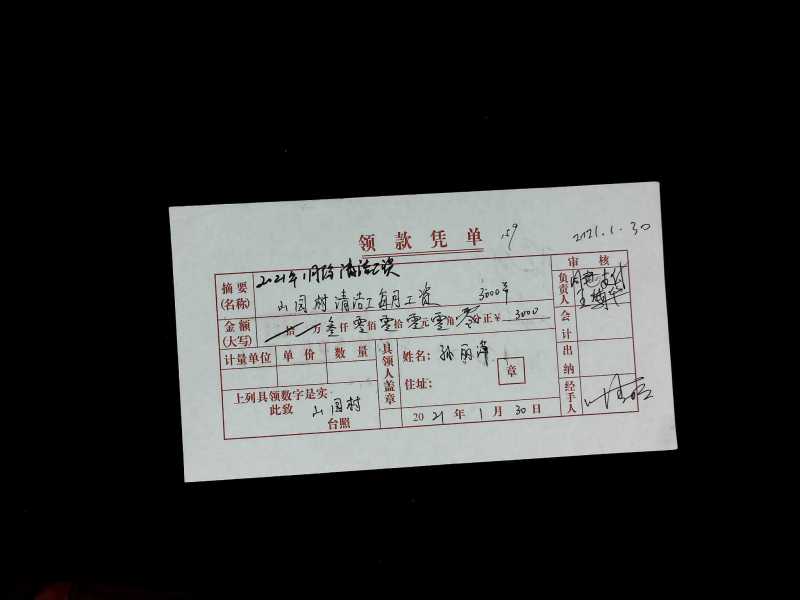 领款凭单 159 2021.1.30
摘要(名称) 2021年1月份清洁工资
山园村清洁工每月工资 3000年
审核
负责人 同意支付
金额(大写) 拾 万 叁仟 零佰 零拾 零元 零角 零分正 ¥ 3000
会计
计量单位 单价 数量
具领人盖章
姓名: 孙丽萍
住址: 章
出纳
上列具领数字是实
此致 山园村
台照
2021年1月30日
经手人